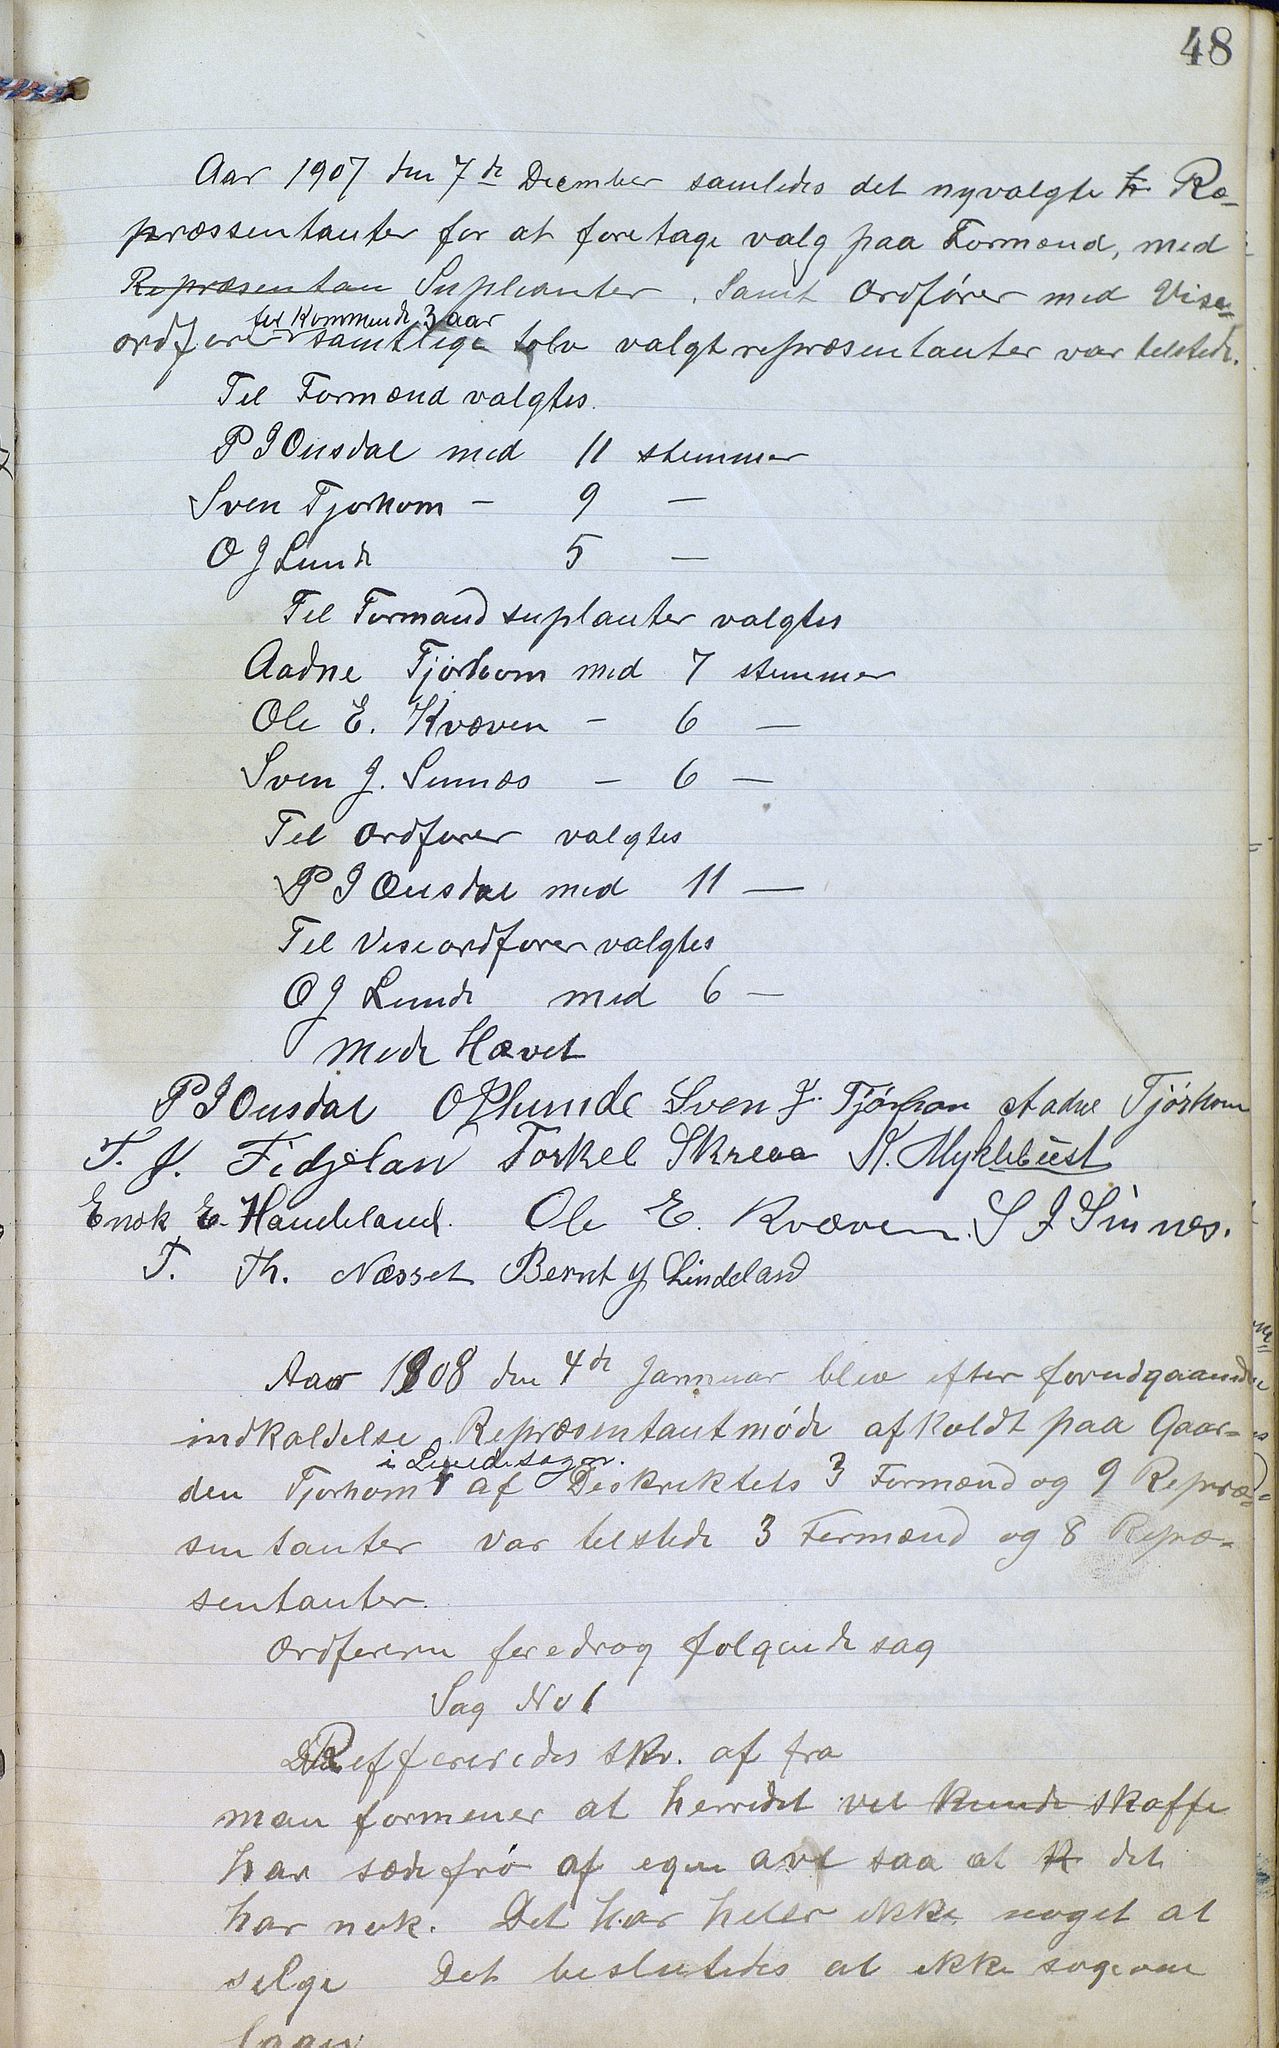 48
Aar 1907 den 7de December samledes det nyvalgte fr Re-
præssentanter for at foretage valg paa Formænd, med
Repræsentan Suplianter. Samt Ordfører med Vise-
for kommende 3 aar
ordfører samtlige tolv valgt repræsentanter var tilstede.
Til Formænd valgtes.
P J Ousdal med 11 stemmer
Sven Tjorhom - 9 —
O J Lunde 5 —
Til Formand suplanter valgtes
Aadne Tjørhom med 7 stemmer
Ole E. Kvæven - 6 —
Sven J. Sinnæs — 6 —
Til Ordforer valgtes
P J Ousdal med 11 —
Til Viseordforer valgtes
O J Lunde med 6 —
Møde Hævet
P J Ousdal O J Lunde Sven J. Tjörhom Aadne Tjørhom
T. J. Fidjelan Torkel Skreaa K. Myklebust
Enok E. Haudeland. Ole E. Kvæven. S J Sinnes.
T. Th. Nesset Bernt J Lindeland
Aar 1908 den 4de Januar blev efter forudgaaende
indkaldelse Repræsentantmøde afholdt paa Gaar-
i Lundesogn.
den Tjorhom af Destriktets 3 Formænd og 9 Repræ-
sentanter var tilstede 3 Formænd og 8 Repræ-
sentanter.
Ordføreren foredrog folgende sag
Sag No 1
Reffereredes skr. af fra
man formener at herredet vel kunde skaffe
har sædefrö af egen avl saa at R det
har nok. Det har heler ikke noget at
selge Det beslutedes at ikke soge om
laan